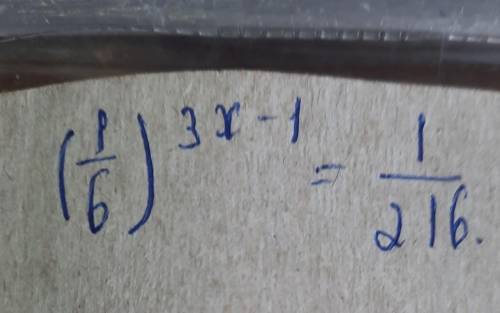 (1/6)^(3x-1) = 1/216.